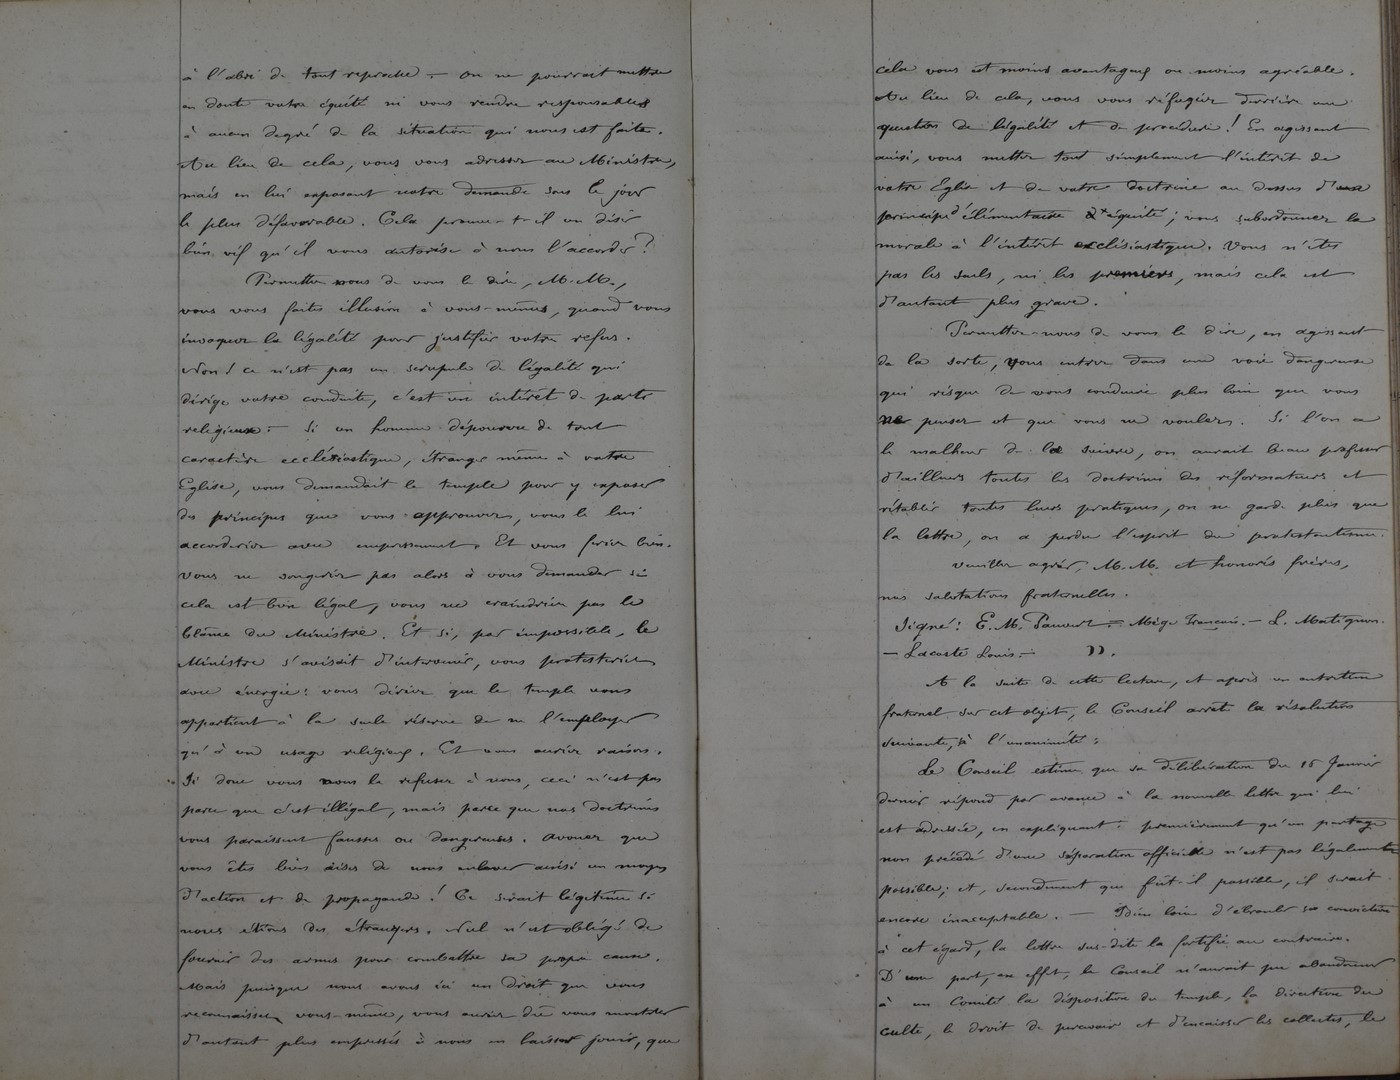 à l'abri de tout reproche = on ne pourrait mettre
en doute votre équité ni vous rendre responsables
à aucun degré de la situation qui nous est faite.
Au lieu de cela, vous vous adressez au Ministre,
mais en lui exposant notre demande sous le jour
le plus défavorable. Cela prouve-t-il un désir
bien vif qu'il vous autorise à nous l'accorder?
Permettez nous de vous le dire, M.M.,
vous vous faites illusion à vous-mêmes, quand vous
invoquez la légalité pour justifier votre refus.
Non! ce n'est pas un scrupule de légalité qui
dirige votre conduite, c'est un intérêt de parti
religieux = Si un homme dépourvu de tout
caractère ecclésiastique, étranger même à votre
Eglise, vous demandait le temple pour y exposer
des principes que vous approuvez, vous le lui
accorderiez avec empressement. Et vous feriez bien.
Vous ne songeriez pas alors à vous demander si
cela est bien légal, vous ne craindriez pas le
blâme du Ministre. Et si, par impossible, le
Ministre s'avisait d'intervenir, vous protesteriez
avec énergie: vous diriez que le temple vous
appartient à la seule réserve de ne l'employer
qu'à un usage religieux. Et vous auriez raison.
Si donc vous nous le refusez à nous, ceci n'est pas
parce que c'est illégal, mais parce que nos doctrines
vous paraissent fausses ou dangereuses. Avouez que
vous êtes bien aises de nous enlever ainsi un moyen
d'action et de propagande! Ce serait légitime si
nous étions des étrangers. Nul n'est obligé de
fournir des armes pour combattre sa propre cause.
Mais puisque nous avons ici un droit que vous
reconnaissez vous-même, vous auriez dû vous montrer
d'autant plus empressés à nous en laisser jouir, que
cela vous est moins avantageux ou moins agréable.
Au lieu de cela, vous vous réfugiez derrière une
question de légalité et de procédure! En agissant
ainsi, vous mettez tout simplement l'intérêt de
votre Eglise et de votre doctrine au dessus d'un
principe d'élémentaire équité; vous subordonnez la
morale à l'intérêt ecclésiastique. Vous n'êtes
pas les seuls, ni les premiers, mais cela est
d'autant plus grave.
Permettez-nous de vous le dire, en agissant
de la sorte, vous entrez dans une voie dangereuse
qui risque de vous conduire plus loin que vous
ne pensez et que vous ne voulez. Si l'on a
le malheur de la suivre, on aurait beau professer
d'ailleurs toutes les doctrines des réformateurs et
rétablir toutes leurs pratiques, on ne garde plus que
la lettre, on a perdu l'esprit du protestantisme.
Veuillez agréer, M.M. et honorés frères,
nos salutations fraternelles.
Signé: E. M. = Mège François. — L. Matignon.
— Lacoste Louis. — ».
A la suite de cette lecture, et après un entretien
fraternel sur cet objet, le Conseil arrête la résolution
suivante, à l'unanimité:
Le Conseil estime que sa délibération du 16 Janvier
dernier répond par avance à la nouvelle lettre qui lui
est adressée, en expliquant: premièrement qu'un partage
non précédé d'une séparation officielle n'est pas légalement
possible; et, secondement que fût-il possible, il serait
encore inacceptable. — Bien loin d'ébranler sa conviction
à cet égard, la lettre sus-dite la fortifie au contraire.
D'une part, en effet, le Conseil n'aurait pu abandonner
à un Comité la disposition du temple, la direction du
culte, le droit de percevoir et d'encaisser les collectes, le